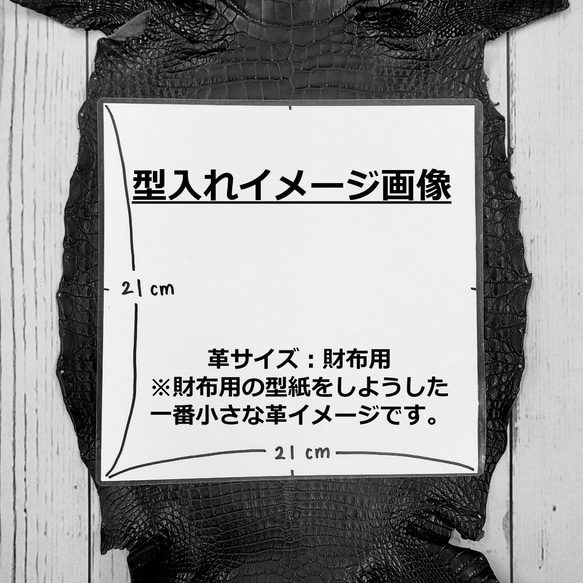 型入れイメージ画像
21 cm
革サイズ：財布用
※財布用の型紙をしようした
一番小さな革イメージです。
21 cm